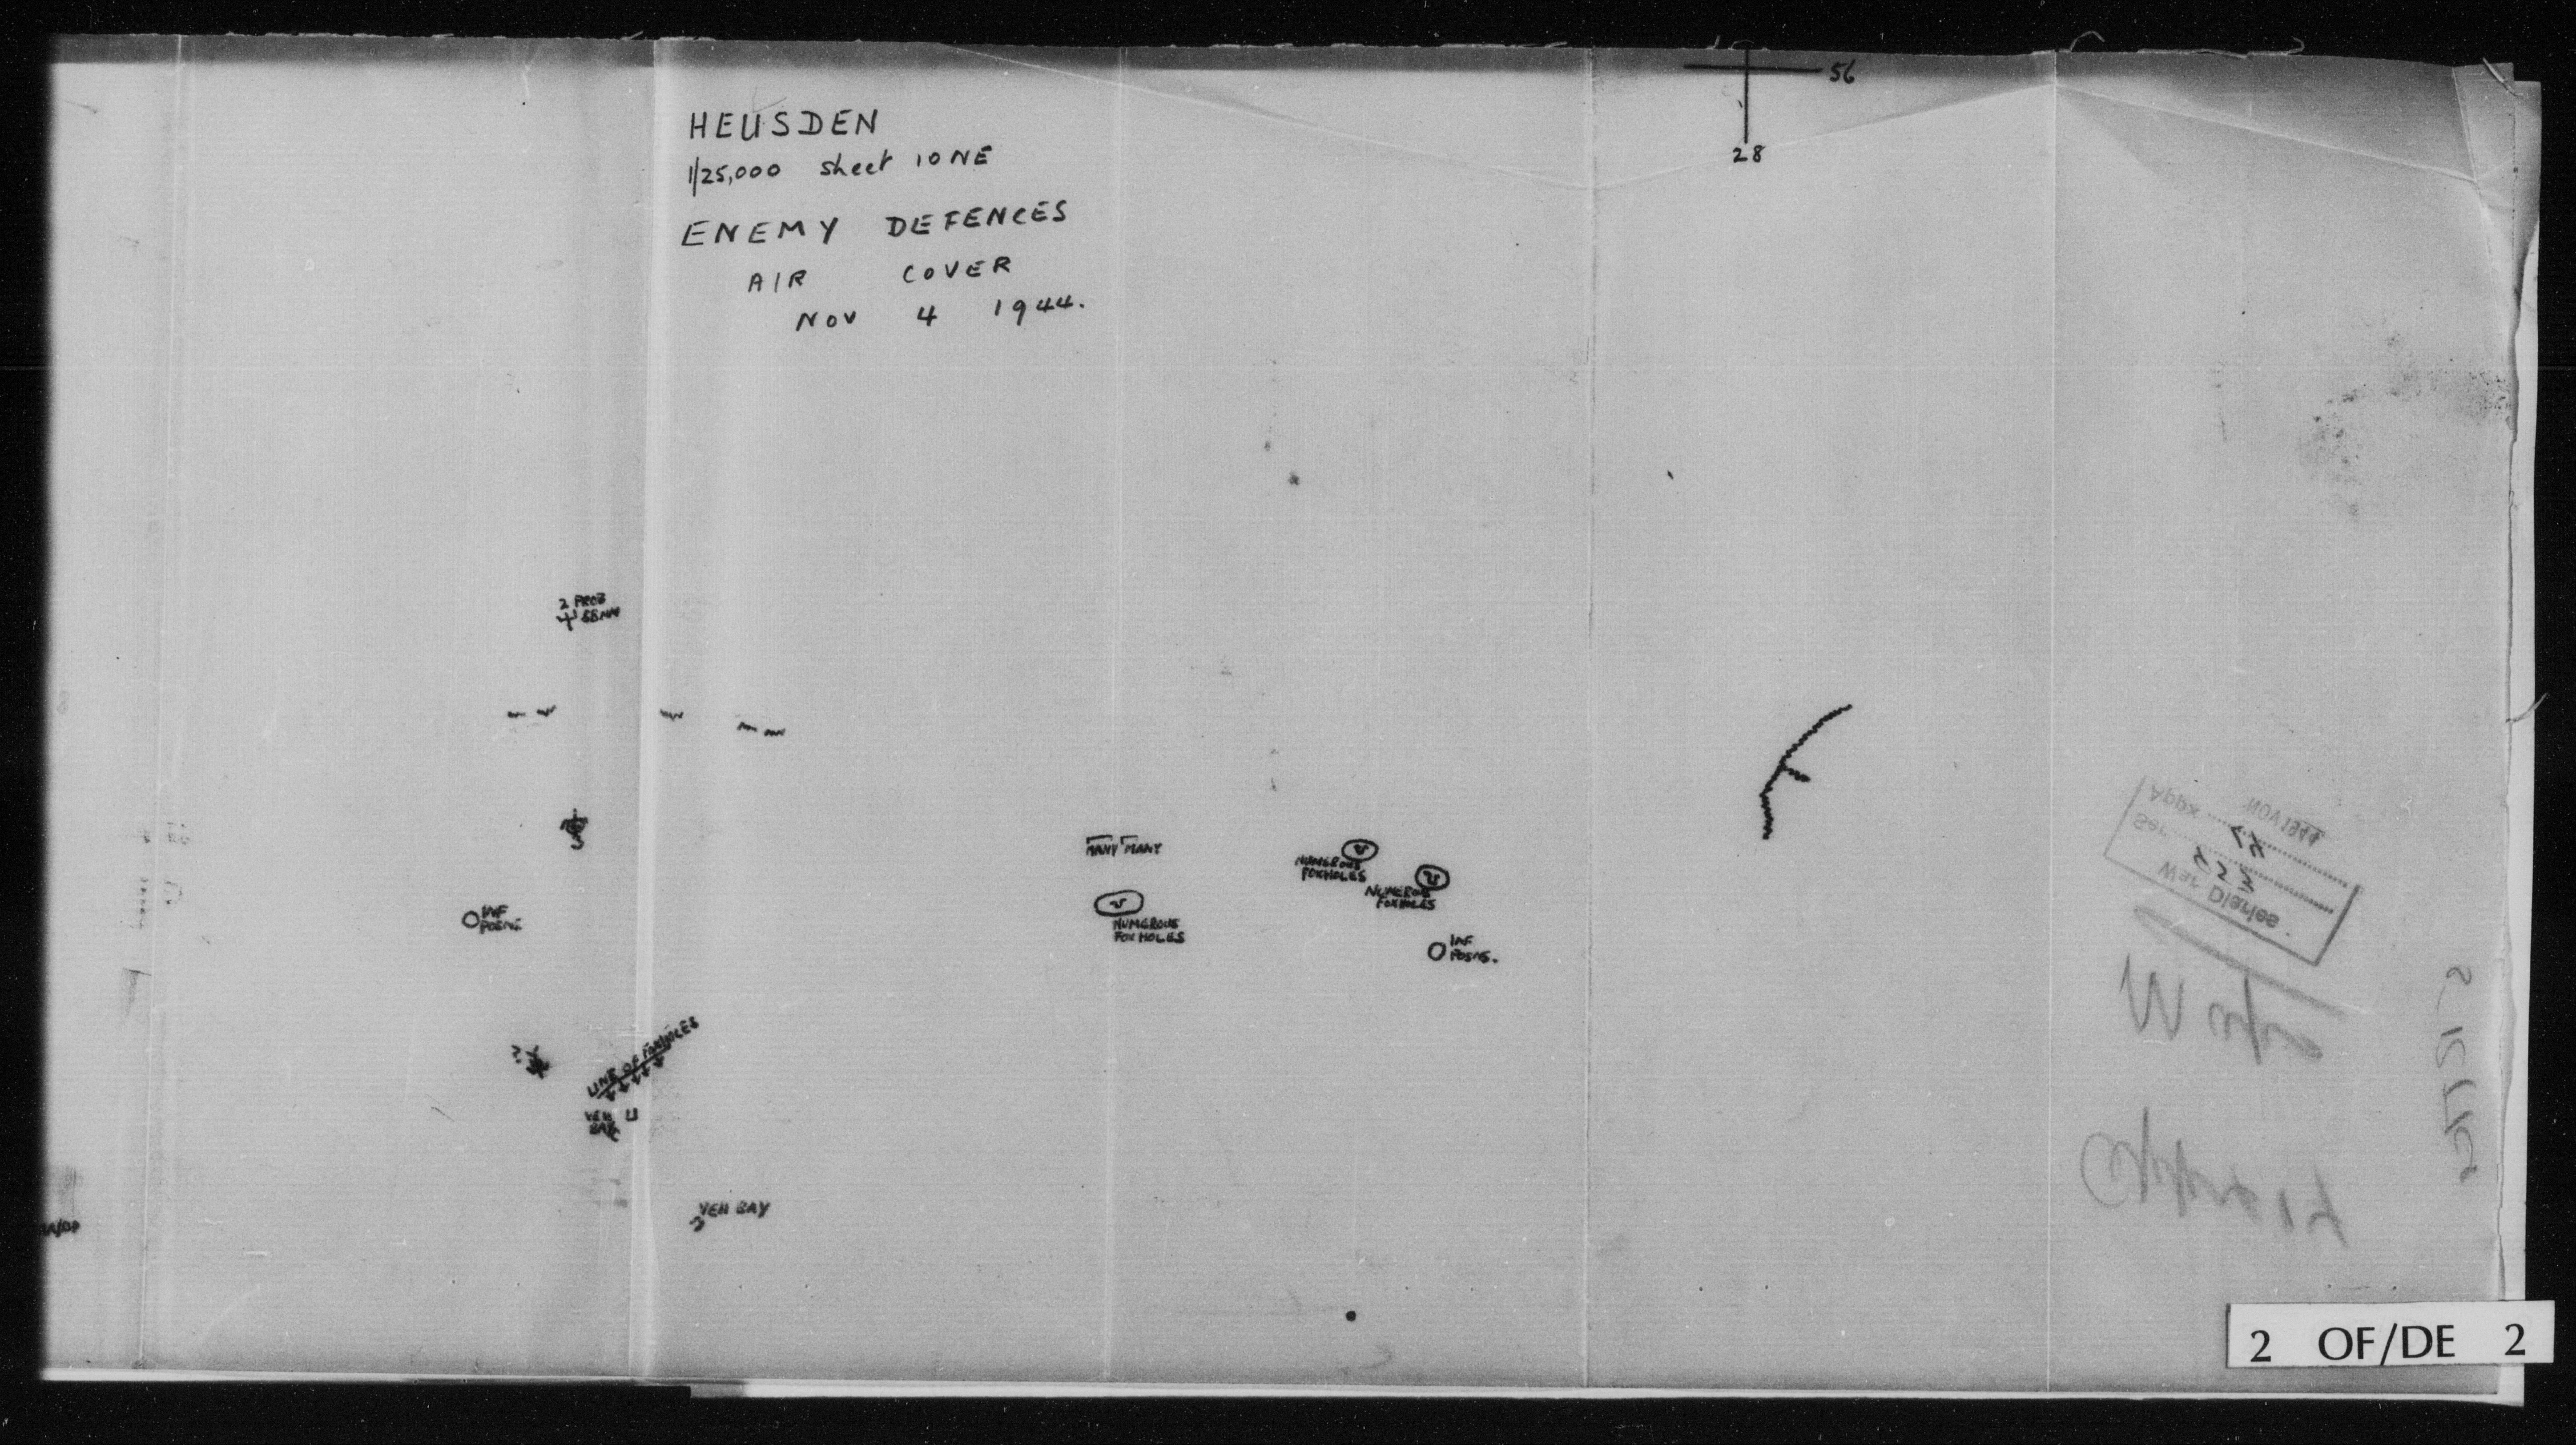 56
28
HEUSDEN
1/25,000 sheet 10 NE
ENEMY DEFENCES
AIR COVER
NOV 4 1944.
2 PROB
88MM
5
MANY MANY
NUMEROUS
FOXHOLES
NUMEROUS
FOXHOLES
INF
POSNS
NUMEROUS
FOXHOLES
INF
POSNS.
?
LINE OF FOXHOLES
VEH
BAY
VEH BAY
War Diaries
Ser
Appx
NOV 1944
2 OF/DE 2